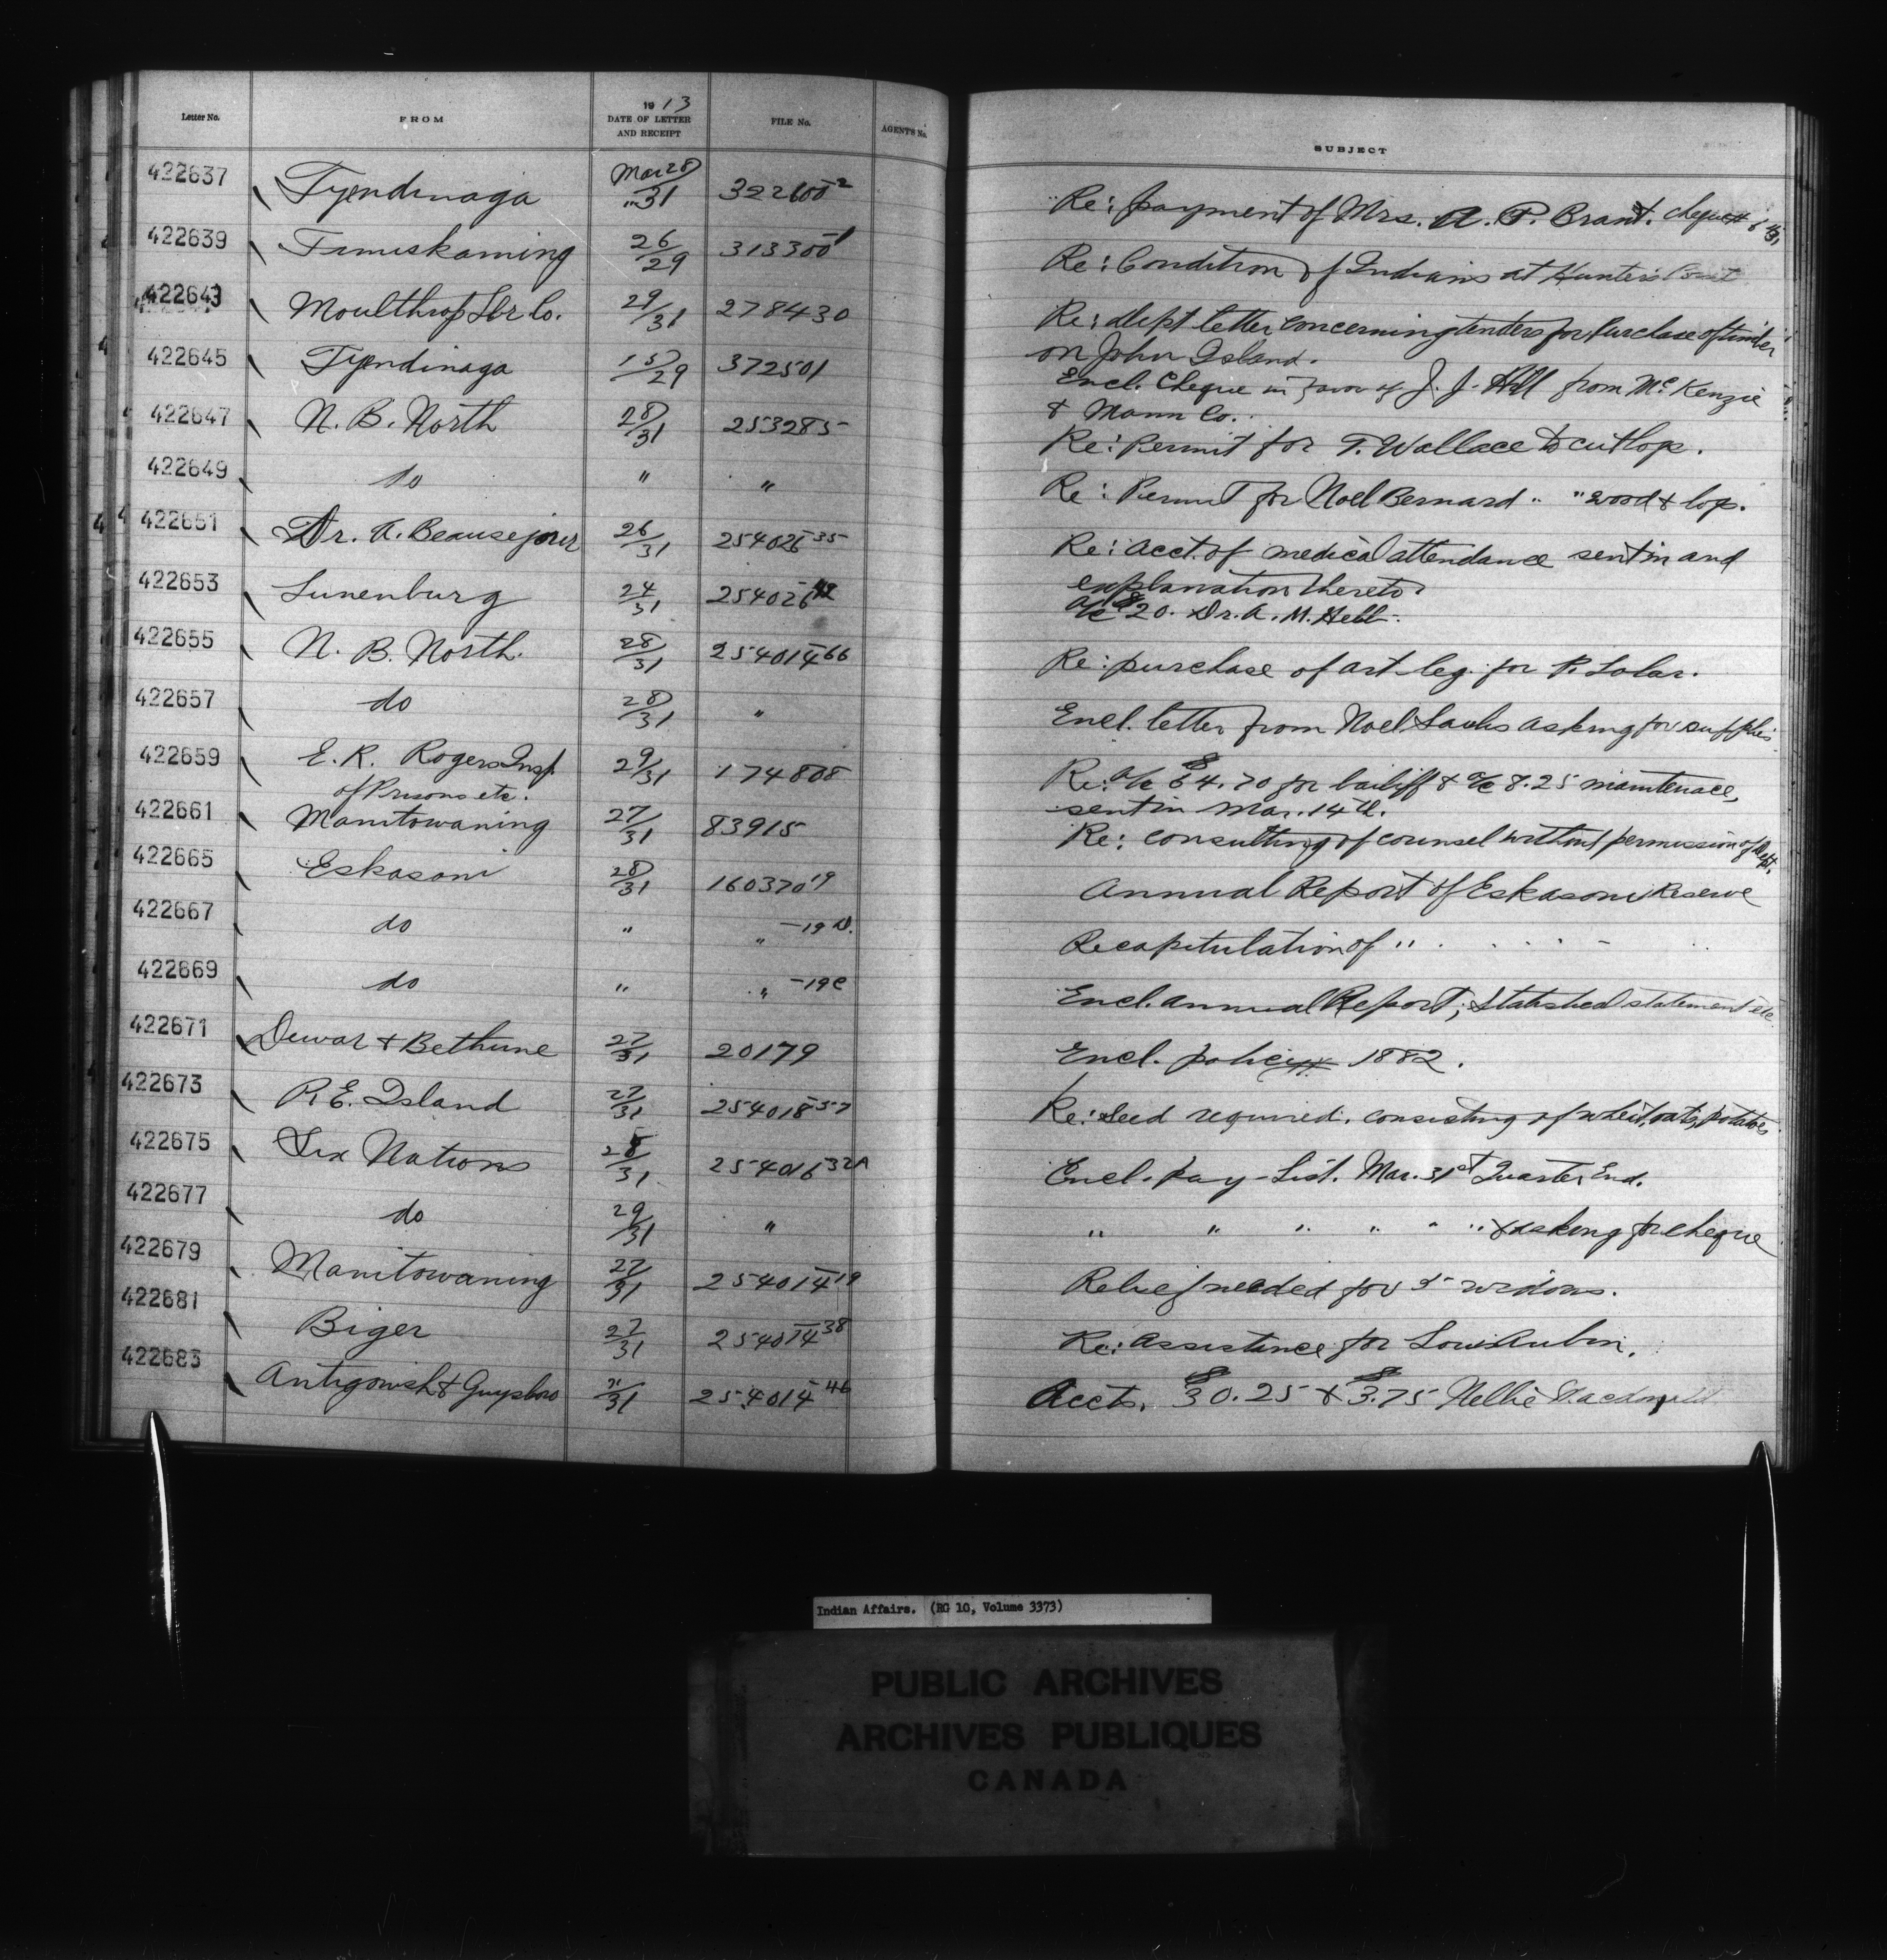 Letter No. FROM 1913 DATE OF LETTER AND RECEIPT FILE No. AGENT'S No. SUBJECT
422637 Tyendinaga Mar 28/31 322600-2 Re: payment of Mrs. A. P. Brant. cheque
422639 Timiskaming 26/29 313300-1 Re: Condition of Indians at Hunter's Point
422643 Moulthrop Lbr Co. 29/31 278430 Re: dept letter concerning tenders for purchase of timber
on John Island.
422645 Tyendinaga 15/29 372501 Encl. Cheque in favor of J. J. Hill from McKenzie
& Mann Co.
422647 N. B. North 28/31 253285 Re: Permit for T. Wallace to cut logs.
422649 do " " Re: Permit for Noel Bernard " " wood & logs.
422651 Dr. A. Beausejour 26/31 254026-35 Re: acct. of medical attendance sent in and
explanation thereto.
422653 Lunenburg 24/31 254026 a/c $20. Dr. A. M. Hebb.
422655 N. B. North. 28/31 254014-66 Re: purchase of art leg. for P. Lolar.
422657 do 28/31 " Encl. letter from Noel asking for supplies
422659 E. R. Rogers Insp. 29/31 174808 Re: a/c $64.70 for bailiff & a/c 8.25 maintenace,
of Prisons etc. sent in Mar. 14th.
422661 Manitowaning 27/31 83915 Re: consulting of counsel without permission of Dept.
422665 Eskasoni 28/31 160370-19 Annual Report of Eskasoni Reserve
422667 do " " -19 D. Recapitulation of " . . . . -
422669 do " " -19 C Encl. annual Report, Statistical statement etc.
422671 Dewar & Bethune 27/31 20179 Encl. 1882.
422673 P.E. Island 27/31 254018-57 Re: Seed required. consisting of wheat, oats, potatoes.
422675 Six Nations 28/31 254016-32A Encl. pay-list. Mar. 31st Quarter End.
422677 do 29/31 " " " " " " " & asking for cheque
422679 Manitowaning 27/31 254014-19 Relief needed for 5 widows.
422681 Biger 27/31 254014-38 Re: Assistance for Louis Aubin.
422683 Antigonish & Guysboro /31 254014-46 Accts. $30.25 & $3.75 Nellie Macdonald
Indian Affairs. (RG 10, Volume 3373)
PUBLIC ARCHIVES
ARCHIVES PUBLIQUES
CANADA